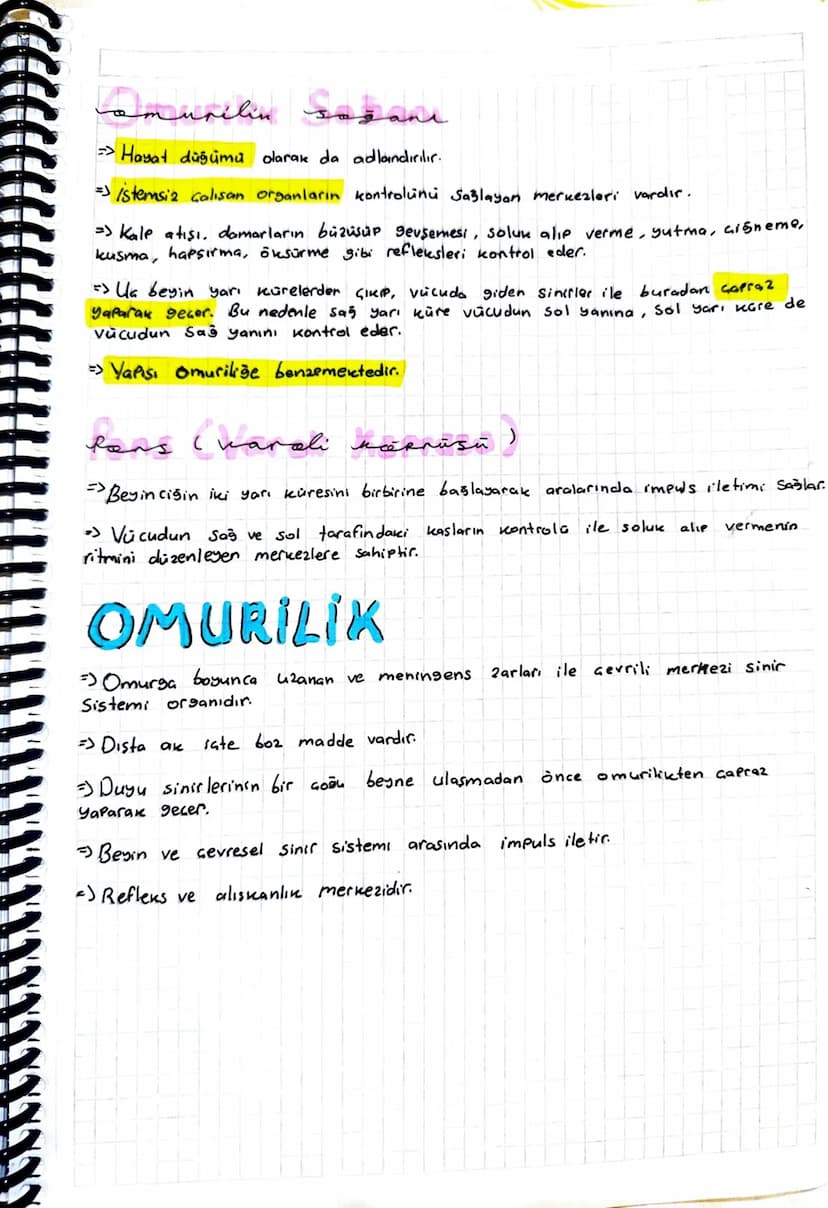 Omurilik Soğanı
=> Hayat düğümü olarak da adlandırılır.
=> İstemsiz çalışan organların kontrolünü sağlayan merkezleri vardır.
=> Kalp atışı, damarların büzüşüp gevşemesi, soluk alıp verme, yutma, çiğneme,
kusma, hapşırma, öksürme gibi refleksleri kontrol eder.
=> Uç beyin yarı kürelerden çıkıp, vücuda giden sinirler ile buradan çapraz
yaparak geçer. Bu nedenle sağ yarı küre vücudun sol yanına, sol yarı küre de
vücudun sağ yanını kontrol eder.
=> Yapısı omuriliğe benzemektedir.
Pons (Varoli Köprüsü)
=> Beyinciğin iki yarı küresini birbirine bağlayarak aralarında impuls iletimi sağlar.
=> Vücudun sağ ve sol tarafındaki kasların kontrolü ile soluk alıp vermenin
ritmini düzenleyen merkezlere sahiptir.
OMURİLİK
=> Omurga boyunca uzanan ve meningens zarları ile çevrili merkezi sinir
sistemi organıdır.
=> Dışta ak içte boz madde vardır.
=> Duyu sinirlerinin bir çoğu beyne ulaşmadan önce omurilikten çapraz
yaparak geçer.
=> Beyin ve çevresel sinir sistemi arasında impuls iletir.
=> Refleks ve alışkanlık merkezidir.